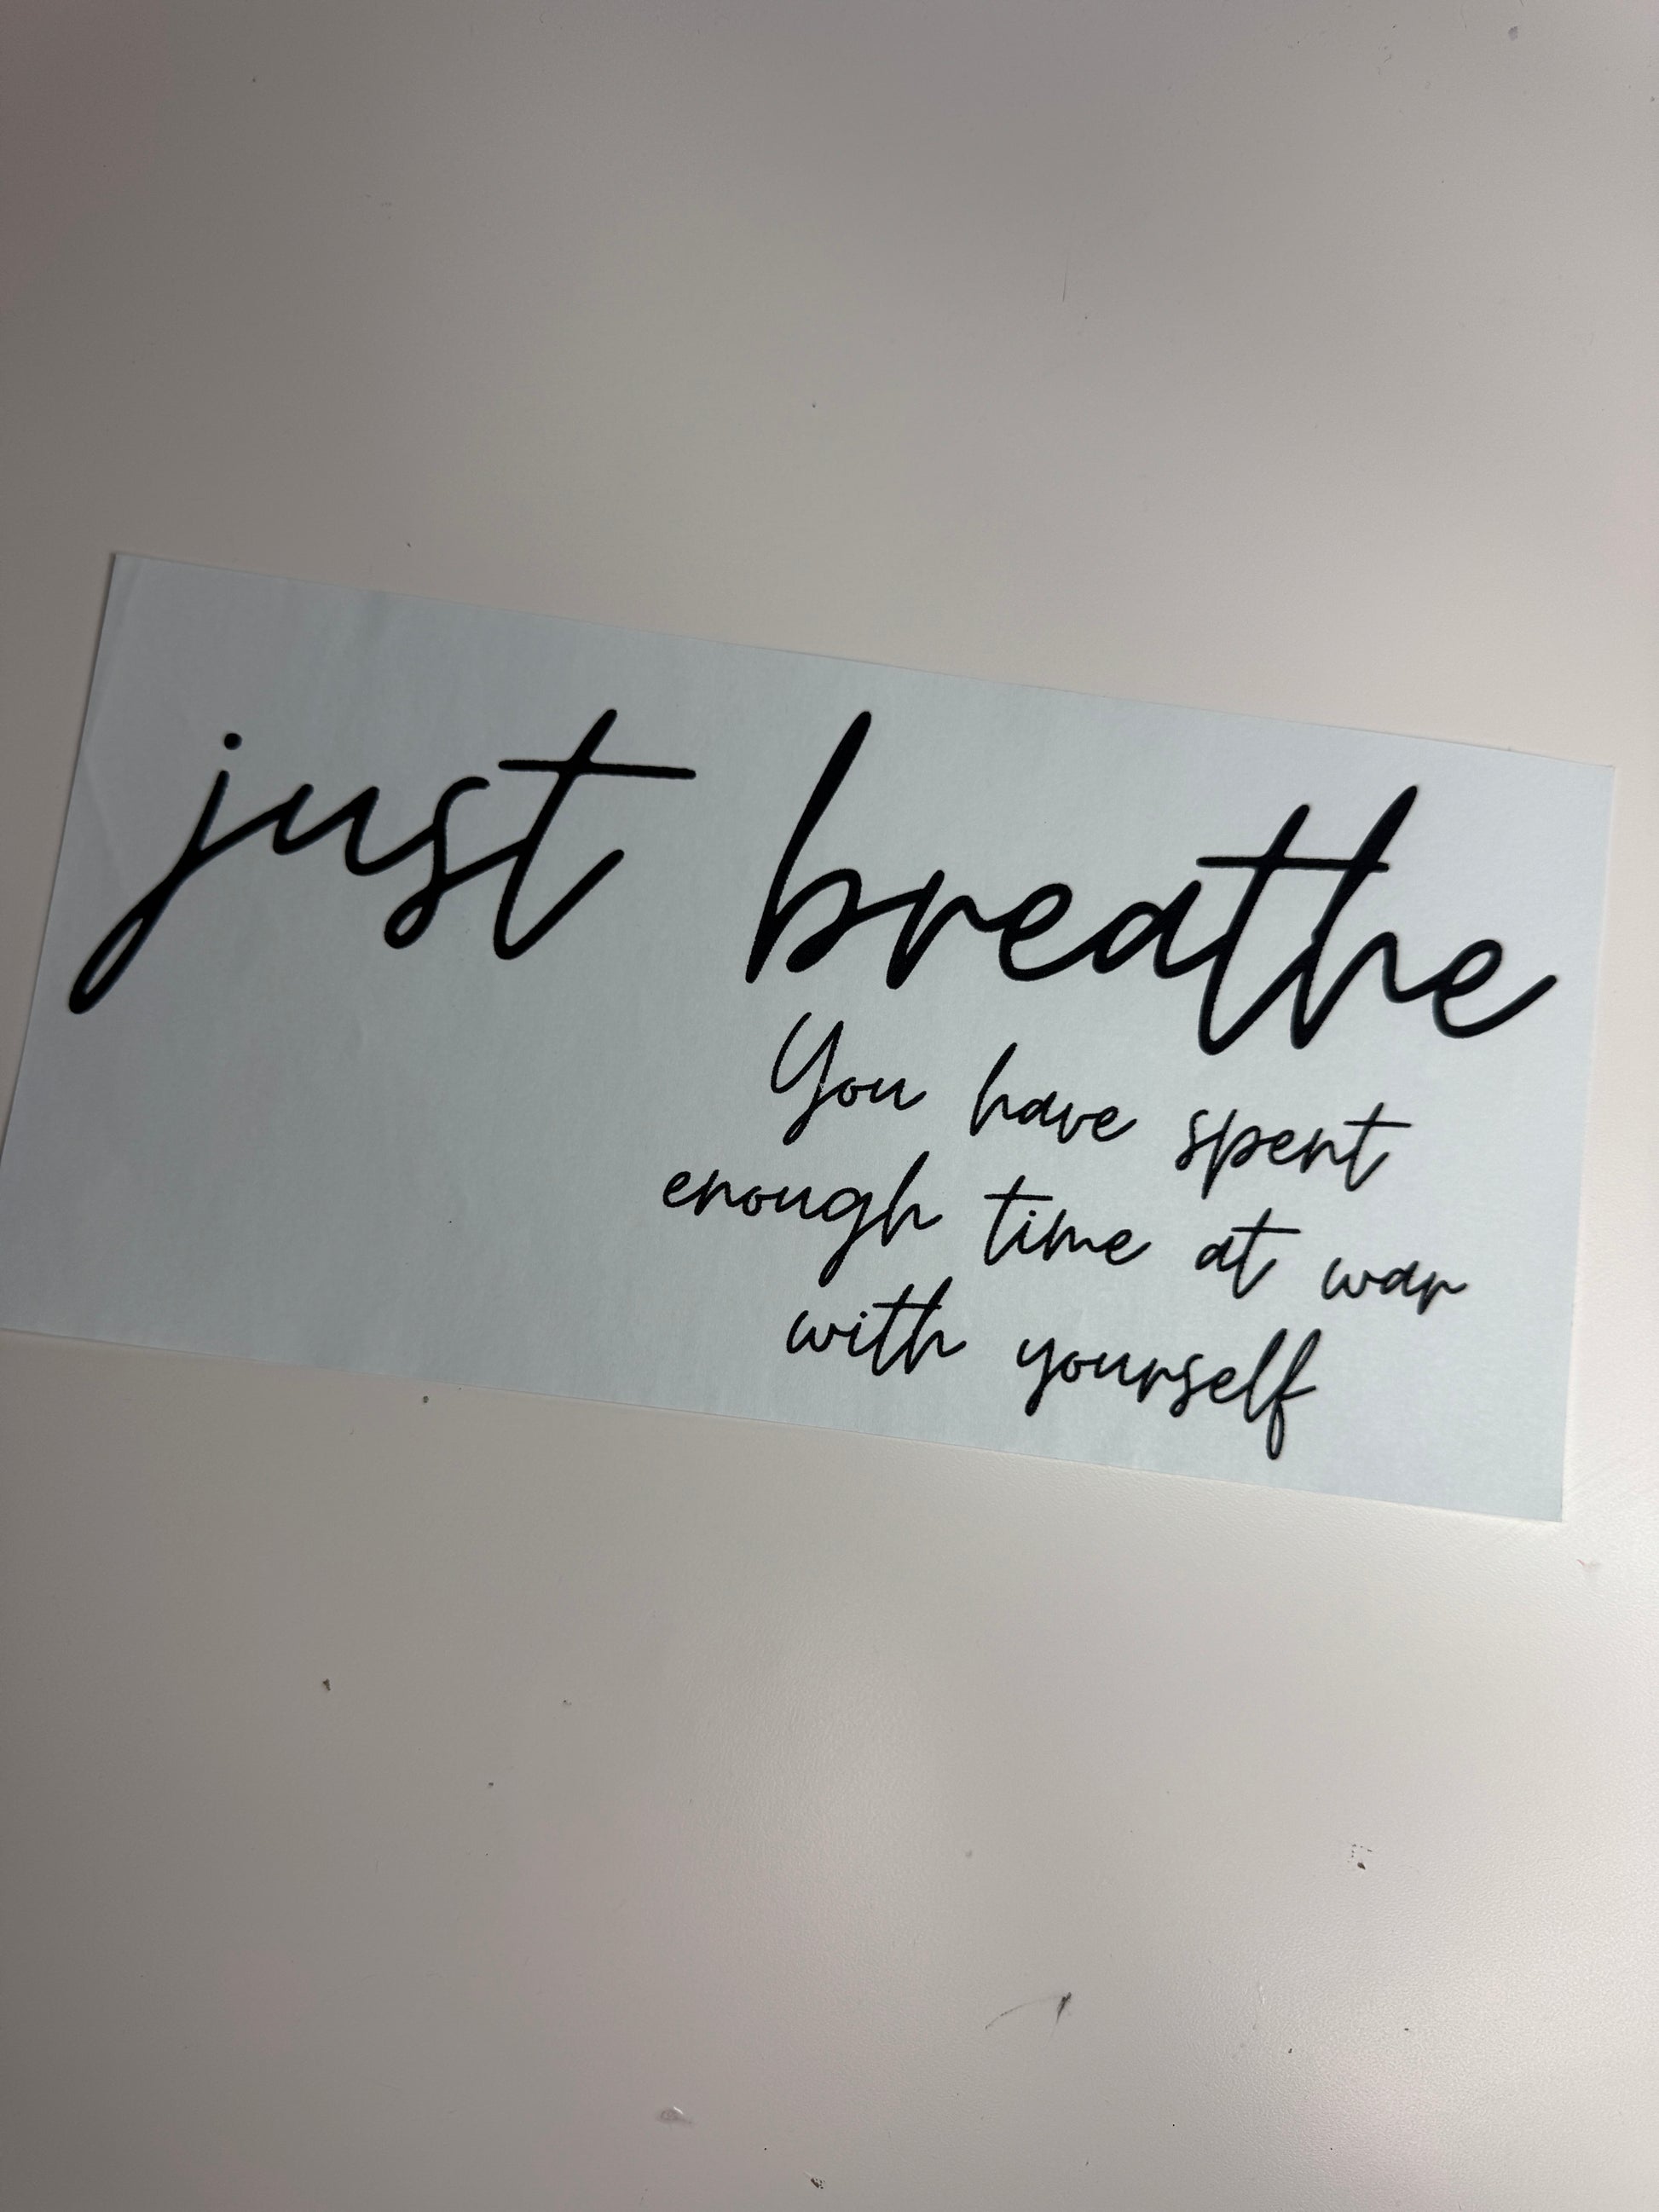 just breathe
You have spent
enough time at war
with yourself